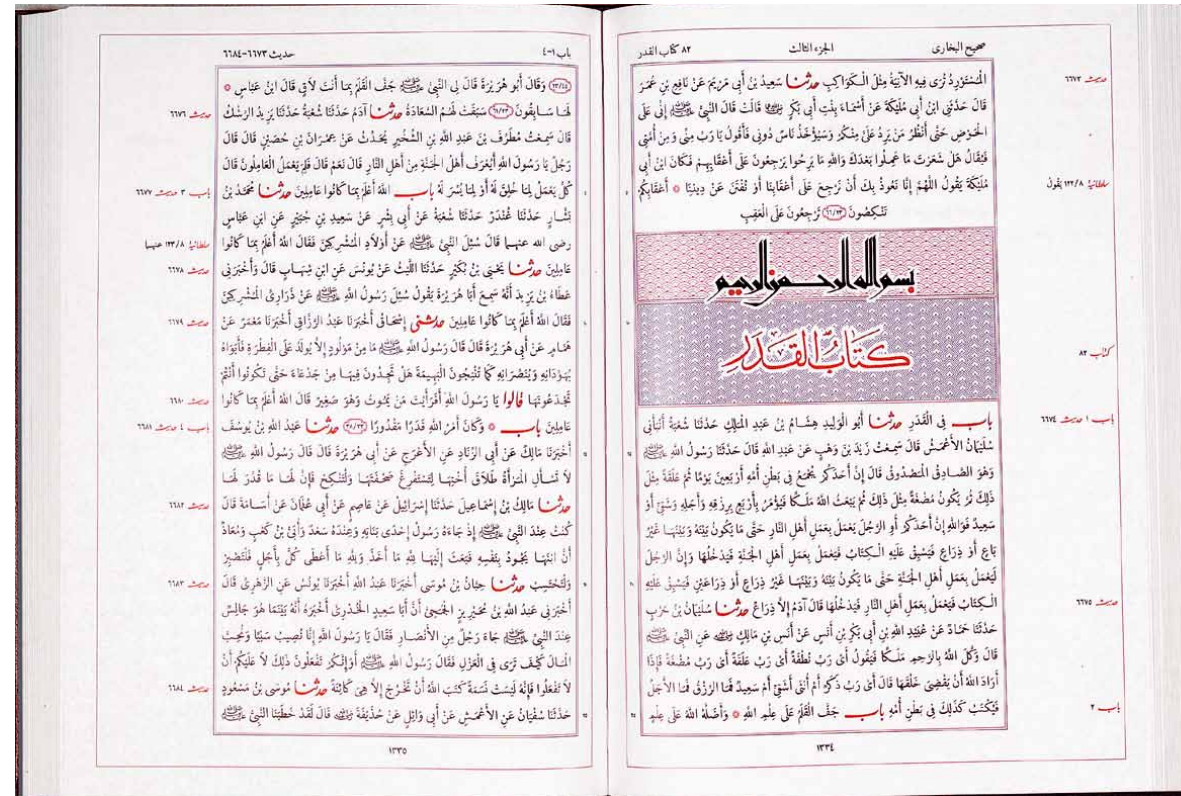 صحيح البخارى
الجزء الثالث
٨٢ كتاب القدر
المستورد ترى فيه الآنية مثل الكواكب حدثنا سعيد بن أبى مريم عن نافع بن عمر
قال حدثنى ابن أبى مليكة عن أسماء بنت أبى بكر رضي الله عنها قالت قال النبى ﷺ إنى على
الحوض حتى أنظر من يرد على منكم وسيؤخذ ناس دونى فأقول يا رب منى ومن أمتى
فيقال هل شعرت ما عملوا بعدك والله ما برحوا يرجعون على أعقابهم فكان ابن أبى
مليكة يقول اللهم إنا نعوذ بك أن نرجع على أعقابنا أو نفتن عن ديننا * أعقابكم
تنكصون (٦٦/٢٣) ترجعون على العقب
بسم الله الرحمن الرحيم
كتاب القدر
باب فى القدر حدثنا أبو الوليد هشام بن عبد الملك حدثنا شعبة أنبأنى
سليمان الأعمش قال سمعت زيد بن وهب عن عبد الله قال حدثنا رسول الله ﷺ
وهو الصادق المصدوق قال إن أحدكم يجمع فى بطن أمه أربعين يوما ثم علقة مثل
ذلك ثم يكون مضغة مثل ذلك ثم يبعث الله ملكا فيؤمر بأربع برزقه وأجله وشقى أو
سعيد فوالله إن أحدكم أو الرجل يعمل بعمل أهل النار حتى ما يكون بينه وبينها غير
باع أو ذراع فيسبق عليه الكتاب فيعمل بعمل أهل الجنة فيدخلها وإن الرجل
ليعمل بعمل أهل الجنة حتى ما يكون بينه وبينها غير ذراع أو ذراعين فيسبق عليه
الكتاب فيعمل بعمل أهل النار فيدخلها قال آدم إلا ذراع حدثنا سليمان بن حرب
حدثنا حماد عن عبيد الله بن أبى بكر بن أنس عن أنس بن مالك رضي الله عنه عن النبى ﷺ
قال وكل الله بالرحم ملكا فيقول أى رب نطفة أى رب علقة أى رب مضغة فإذا
أراد الله أن يقضى خلقها قال أى رب ذكر أم أنثى أشقى أم سعيد فما الرزق فما الأجل
فيكتب كذلك فى بطن أمه باب جف القلم على علم الله * وأضله الله على علم
١٣٣٤
حديث ٦٦٧٣
سلطانية ١٢٢/٨ يقول
كتاب ٨٢
باب ١ حديث ٦٦٧٤
حديث ٦٦٧٥
باب ٢
باب ١-٤
حديث ٦٦٧٣-٦٦٨٤
(٢٣/٤٥) وقال أبو هريرة قال لى النبى ﷺ جف القلم بما أنت لاق قال ابن عباس *
لها سابقون (٦١/٢٣) سبقت لهم السعادة حدثنا آدم حدثنا شعبة حدثنا يزيد الرشك
قال سمعت مطرف بن عبد الله بن الشخير يحدث عن عمران بن حصين قال قال
رجل يا رسول الله أيعرف أهل الجنة من أهل النار قال نعم قال فلم يعمل العاملون قال
كل يعمل لما خلق له أو لما يسر له باب الله أعلم بما كانوا عاملين حدثنا محمد بن
بشار حدثنا غندر حدثنا شعبة عن أبى بشر عن سعيد بن جبير عن ابن عباس
رضى الله عنهما قال سئل النبى ﷺ عن أولاد المشركين فقال الله أعلم بما كانوا
عاملين حدثنا يحيى بن بكير حدثنا الليث عن يونس عن ابن شهاب قال وأخبرنى
عطاء بن يزيد أنه سمع أبا هريرة يقول سئل رسول الله ﷺ عن ذرارى المشركين
فقال الله أعلم بما كانوا عاملين حدثنى إسحاق أخبرنا عبد الرزاق أخبرنا معمر عن
همام عن أبى هريرة قال قال رسول الله ﷺ ما من مولود إلا يولد على الفطرة فأبواه
يهودانه وينصرانه كما تنتجون البهيمة هل تجدون فيها من جدعاء حتى تكونوا أنتم
تجدعونها قالوا يا رسول الله أفرأيت من يموت وهو صغير قال الله أعلم بما كانوا
عاملين باب * وكان أمر الله قدرا مقدورا (٣٨/٣٣) حدثنا عبد الله بن يوسف
أخبرنا مالك عن أبى الزناد عن الأعرج عن أبى هريرة قال قال رسول الله ﷺ
لا تسأل المرأة طلاق أختها لتستفرغ صحفتها ولتنكح فإن لها ما قدر لها
حدثنا مالك بن إسماعيل حدثنا إسرائيل عن عاصم عن أبى عثمان عن أسامة قال
كنت عند النبى ﷺ إذ جاءه رسول إحدى بناته وعنده سعد وأبى بن كعب ومعاذ
أن ابنها يجود بنفسه فبعث إليها لله ما أخذ ولله ما أعطى كل بأجل فلتصبر
ولتحتسب حدثنا حبان بن موسى أخبرنا عبد الله أخبرنا يونس عن الزهرى قال
أخبرنى عبد الله بن محيريز الجمحى أن أبا سعيد الخدرى أخبره أنه بينما هو جالس
عند النبى ﷺ جاء رجل من الأنصار فقال يا رسول الله إنا نصيب سبيا ونحب
المال كيف ترى فى العزل فقال رسول الله ﷺ أوإنكم تفعلون ذلك لا عليكم أن
لا تفعلوا فإنه ليست نسمة كتب الله أن تخرج إلا هى كائنة حدثنا موسى بن مسعود
حدثنا سفيان عن الأعمش عن أبى وائل عن حذيفة رضي الله عنه قال لقد خطبنا النبى ﷺ
١٣٣٥
حديث ٦٦٧٦
باب ٣ حديث ٦٦٧٧
سلطانية ١٢٣/٨ عنهما
حديث ٦٦٧٨
حديث ٦٦٧٩
حديث ٦٦٨٠
باب ٤ حديث ٦٦٨١
حديث ٦٦٨٢
حديث ٦٦٨٣
حديث ٦٦٨٤